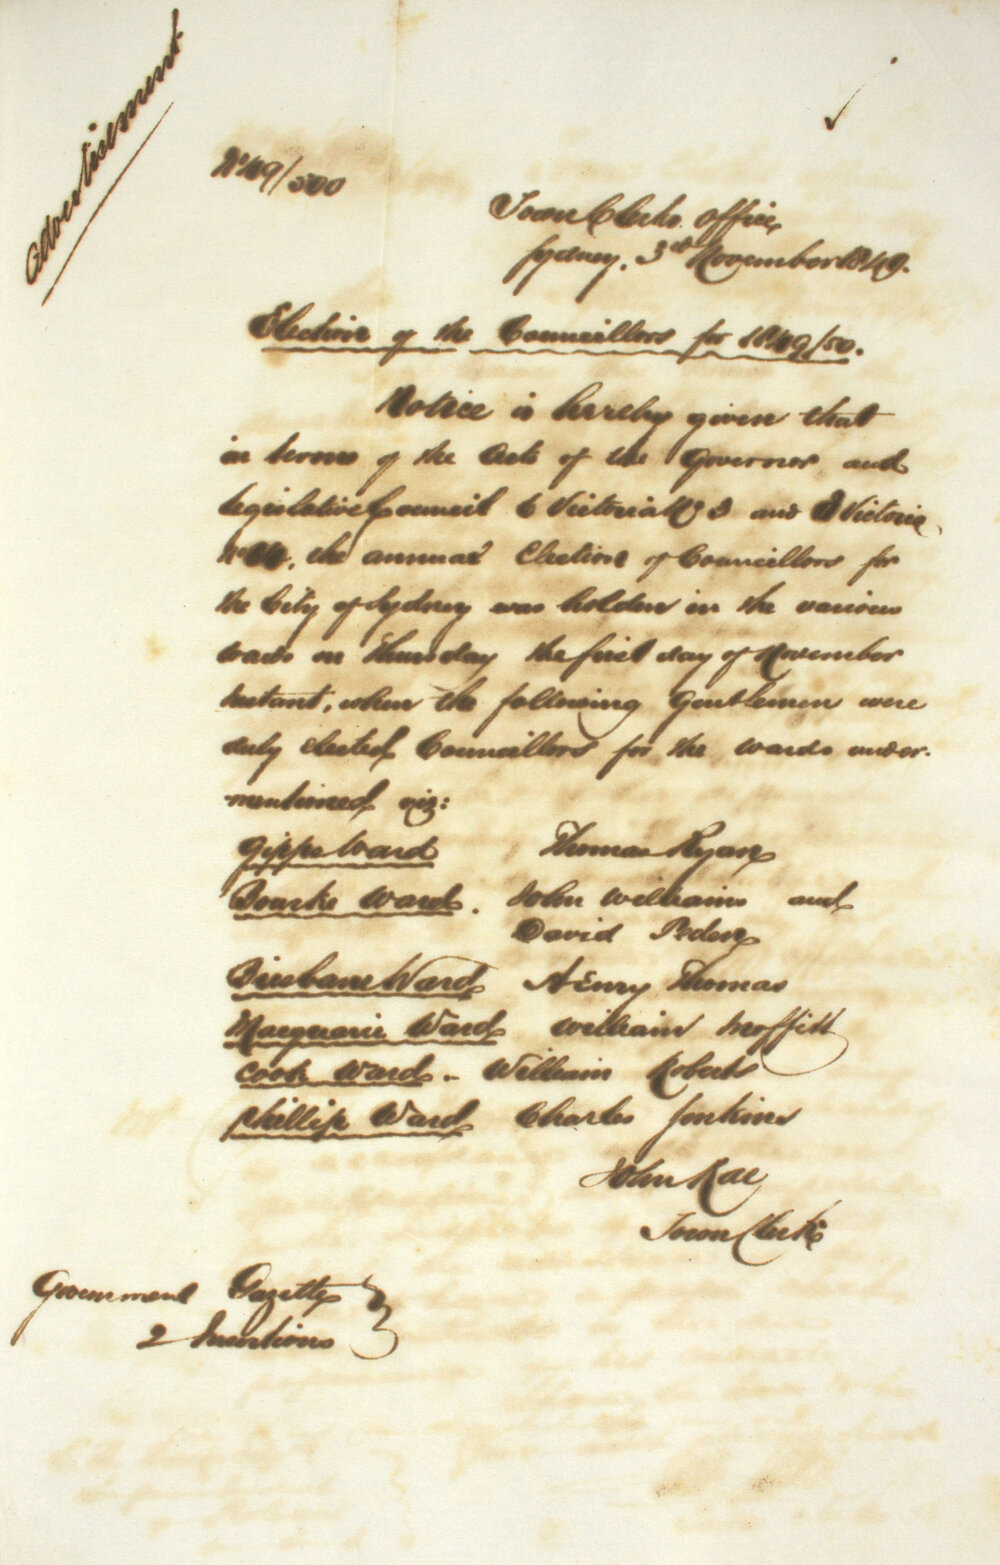 Advertisement
No 49/500
Town Clerks Office
Sydney, 3rd November 1849.
Election of the Councillors for 1849/50.
Notice is hereby given that
in terms of the Acts of the Governor and
Legislative Council 6 Victoria No 3 and 8 Victoria
the annual Election of Councillors for
the City of Sydney was holden in the various
wards on Thursday the first day of November
Instant, when the following Gentlemen were
duly elected Councillors for the wards under-
mentioned viz:
Gipps Ward Thomas Ryan
Bourke Ward. John Williams and
David Peden
Brisbane Ward Henry Thomas
Macquarie Ward William Moffitt
Cook Ward.. William Roberts
Phillip Ward Charles Jenkins
John Rae
Town Clerk
Government Gazette
2 Insertions